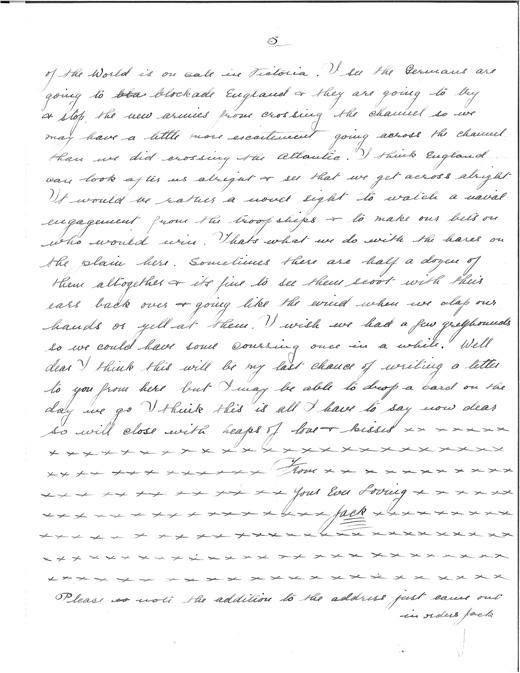 5
of the World is on sale in Victoria. I see the Germans are
going to blockade England & they are going to try
& stop the new armies from crossing the channel so we
may have a little more excitement going across the channel
than we did crossing the Atlantic. I think England
can look after us alright & see that we get across alright
It would be rather a novel sight to watch a naval
engagement from the troopships & to make our bets on
who would win. Thats what we do with the hares on
the plain here. Sometimes there are half a dozen of
them altogether & its fine to see them scoot with their
ears back over & going like the wind when we clap our
hands or yell at them. I wish we had a few greyhounds
so we could have some coursing once in a while. Well
dear I think this will be my last chance of writing a letter
to you from here but I may be able to drop a card on the
day we go I think this is all I have to say now dear
so will close with heaps of love & kisses x x x x x x x
x x x x x x x x x x x x x x x x x x x x x x x x x x x x
x x x x x x x x x x x x x From x x x x x x x x x x x
x x x x x x x x x x x x x x Your Ever Loving x x x x x x
x x x x x x x x x x x x x x x x Jack x x x x x x x x x
x x x x x x x x x x x x x x x x x x x x x x x x x x x x
x x x x x x x x x x x x x x x x x x x x x x x x x x x x
x x x x x x x x x x x x x x x x x x x x x x x x x x x x
Please note the addition to the address just came out
in orders Jack